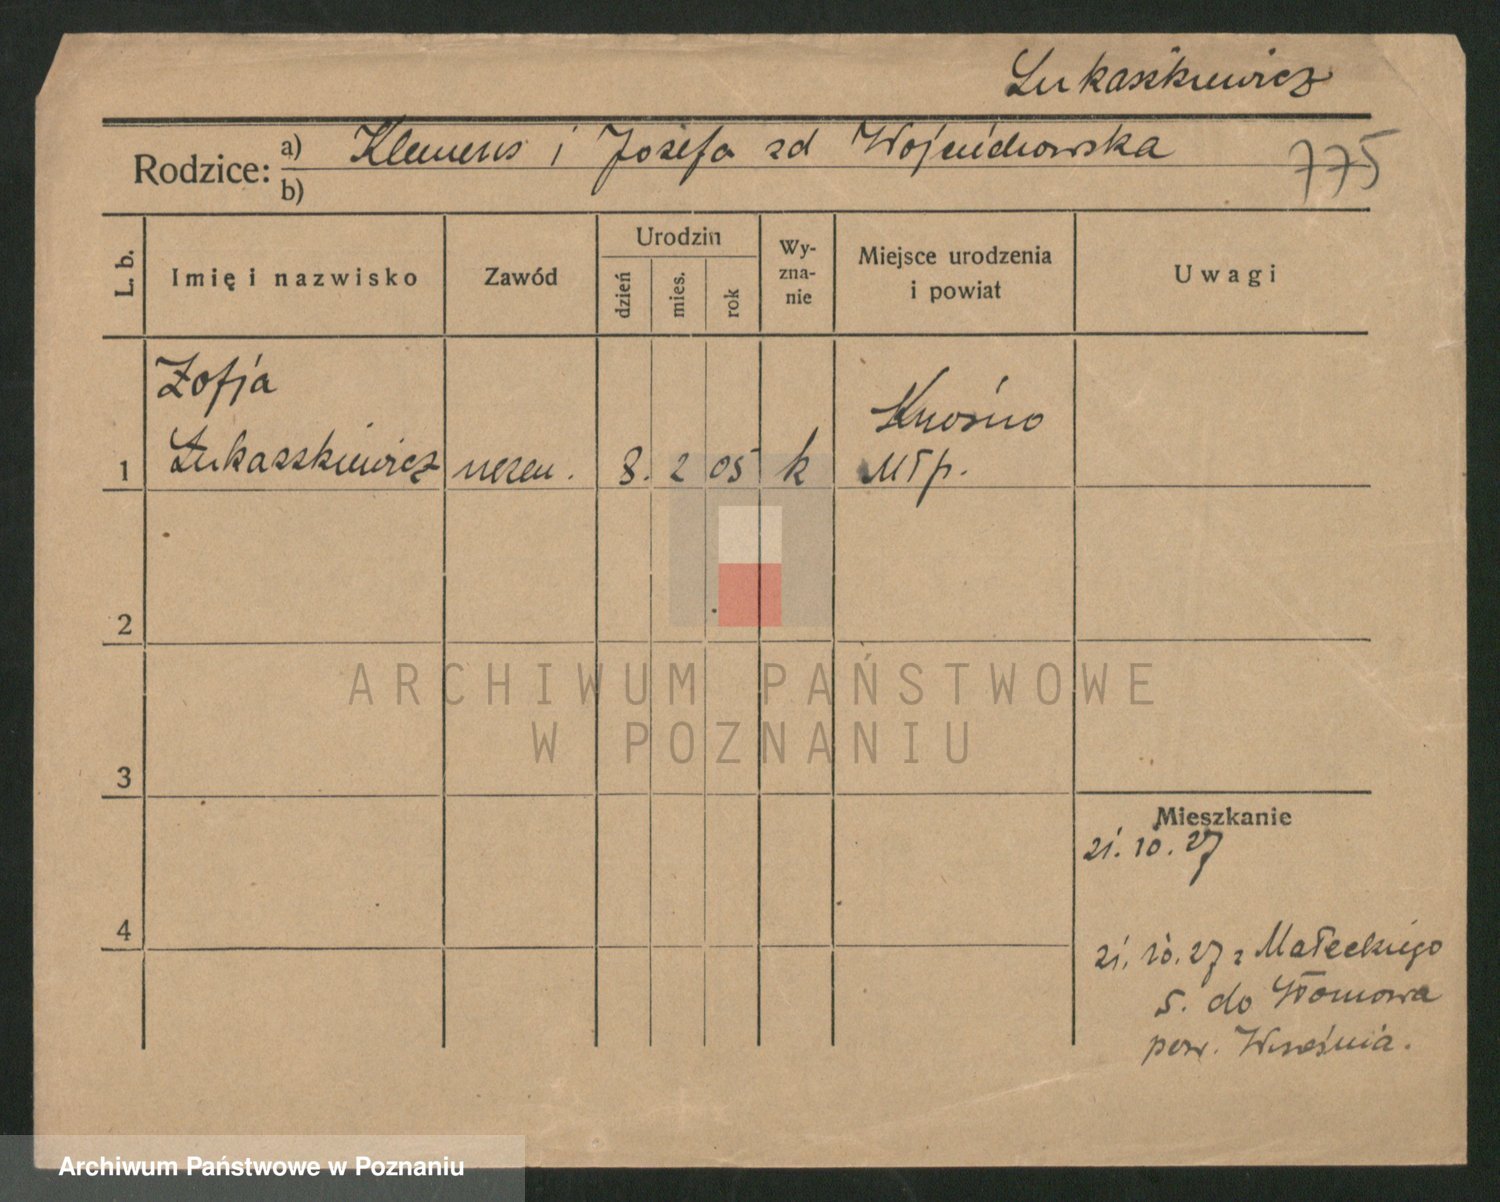 Łukaszkiewicz
Rodzice:
a) Klemens i Józefa zd Wojciechowska
b)
775
L. b.
Imię i nazwisko
Zawód
Urodzin
dzień
mies.
rok
Wy-
zna-
nie
Miejsce urodzenia
i powiat
Uwagi
Zofja
Łukaszkiewicz
8. 2 05 k
Młp.
1
2
3
4
Mieszkanie
21. 10. 27
21. 10. 27 z Małeckiego
5. do
pow. Września.
ARCHIWUM PAŃSTWOWE
W POZNANIU
Archiwum Państwowe w Poznaniu